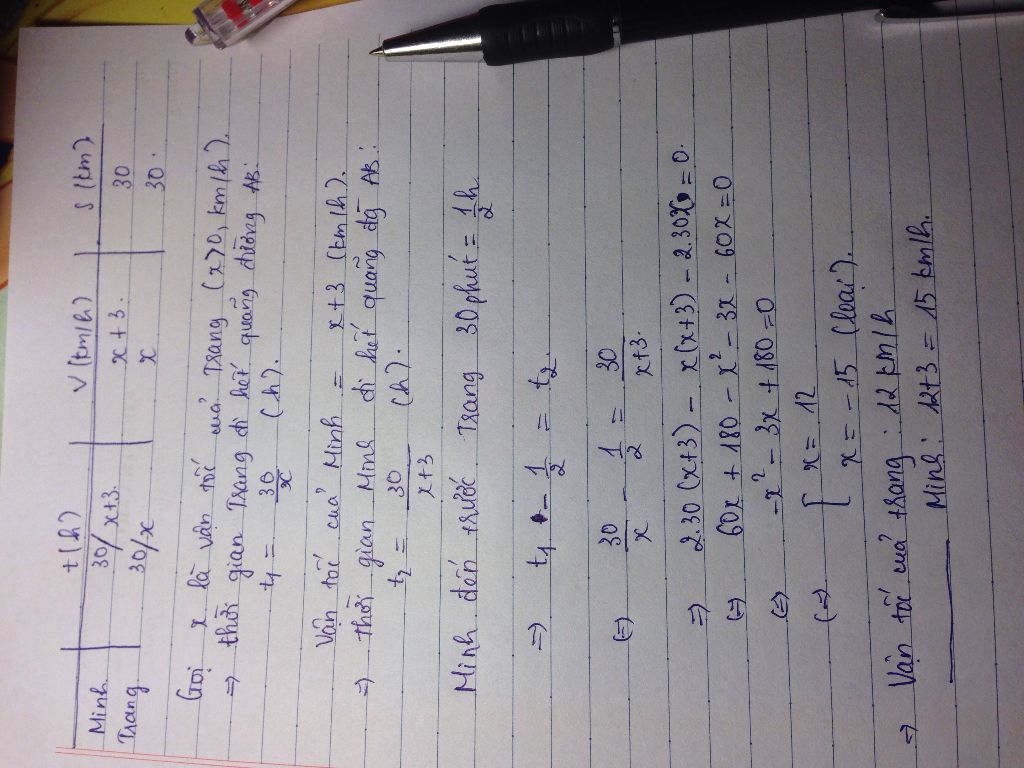 t (h) V (km/h) S (km)
Minh 30/x+3 x + 3. 30
Trang 30/x x 30.
Gọi x là vận tốc của Trang (x>0, km/h).
=> thời gian Trang đi hết quãng đường AB:
t₁ = 30/x (h).
Vận tốc của Minh = x+3 (km/h).
=> thời gian Minh đi hết quãng đg AB:
t₂ = 30/x+3 (h).
Minh đến trước Trang 30 phút = 1/2 h
=> t₁ - 1/2 = t₂
(=) 30/x - 1/2 = 30/x+3
=> 2.30(x+3) - x(x+3) - 2.30x = 0.
(=) 60x + 180 - x² - 3x - 60x = 0
(=) -x² - 3x + 180 = 0
(=) [ x = 12
x = -15 (loại).
=> Vận tốc của trang : 12 km/h
Minh: 12+3 = 15 km/h.